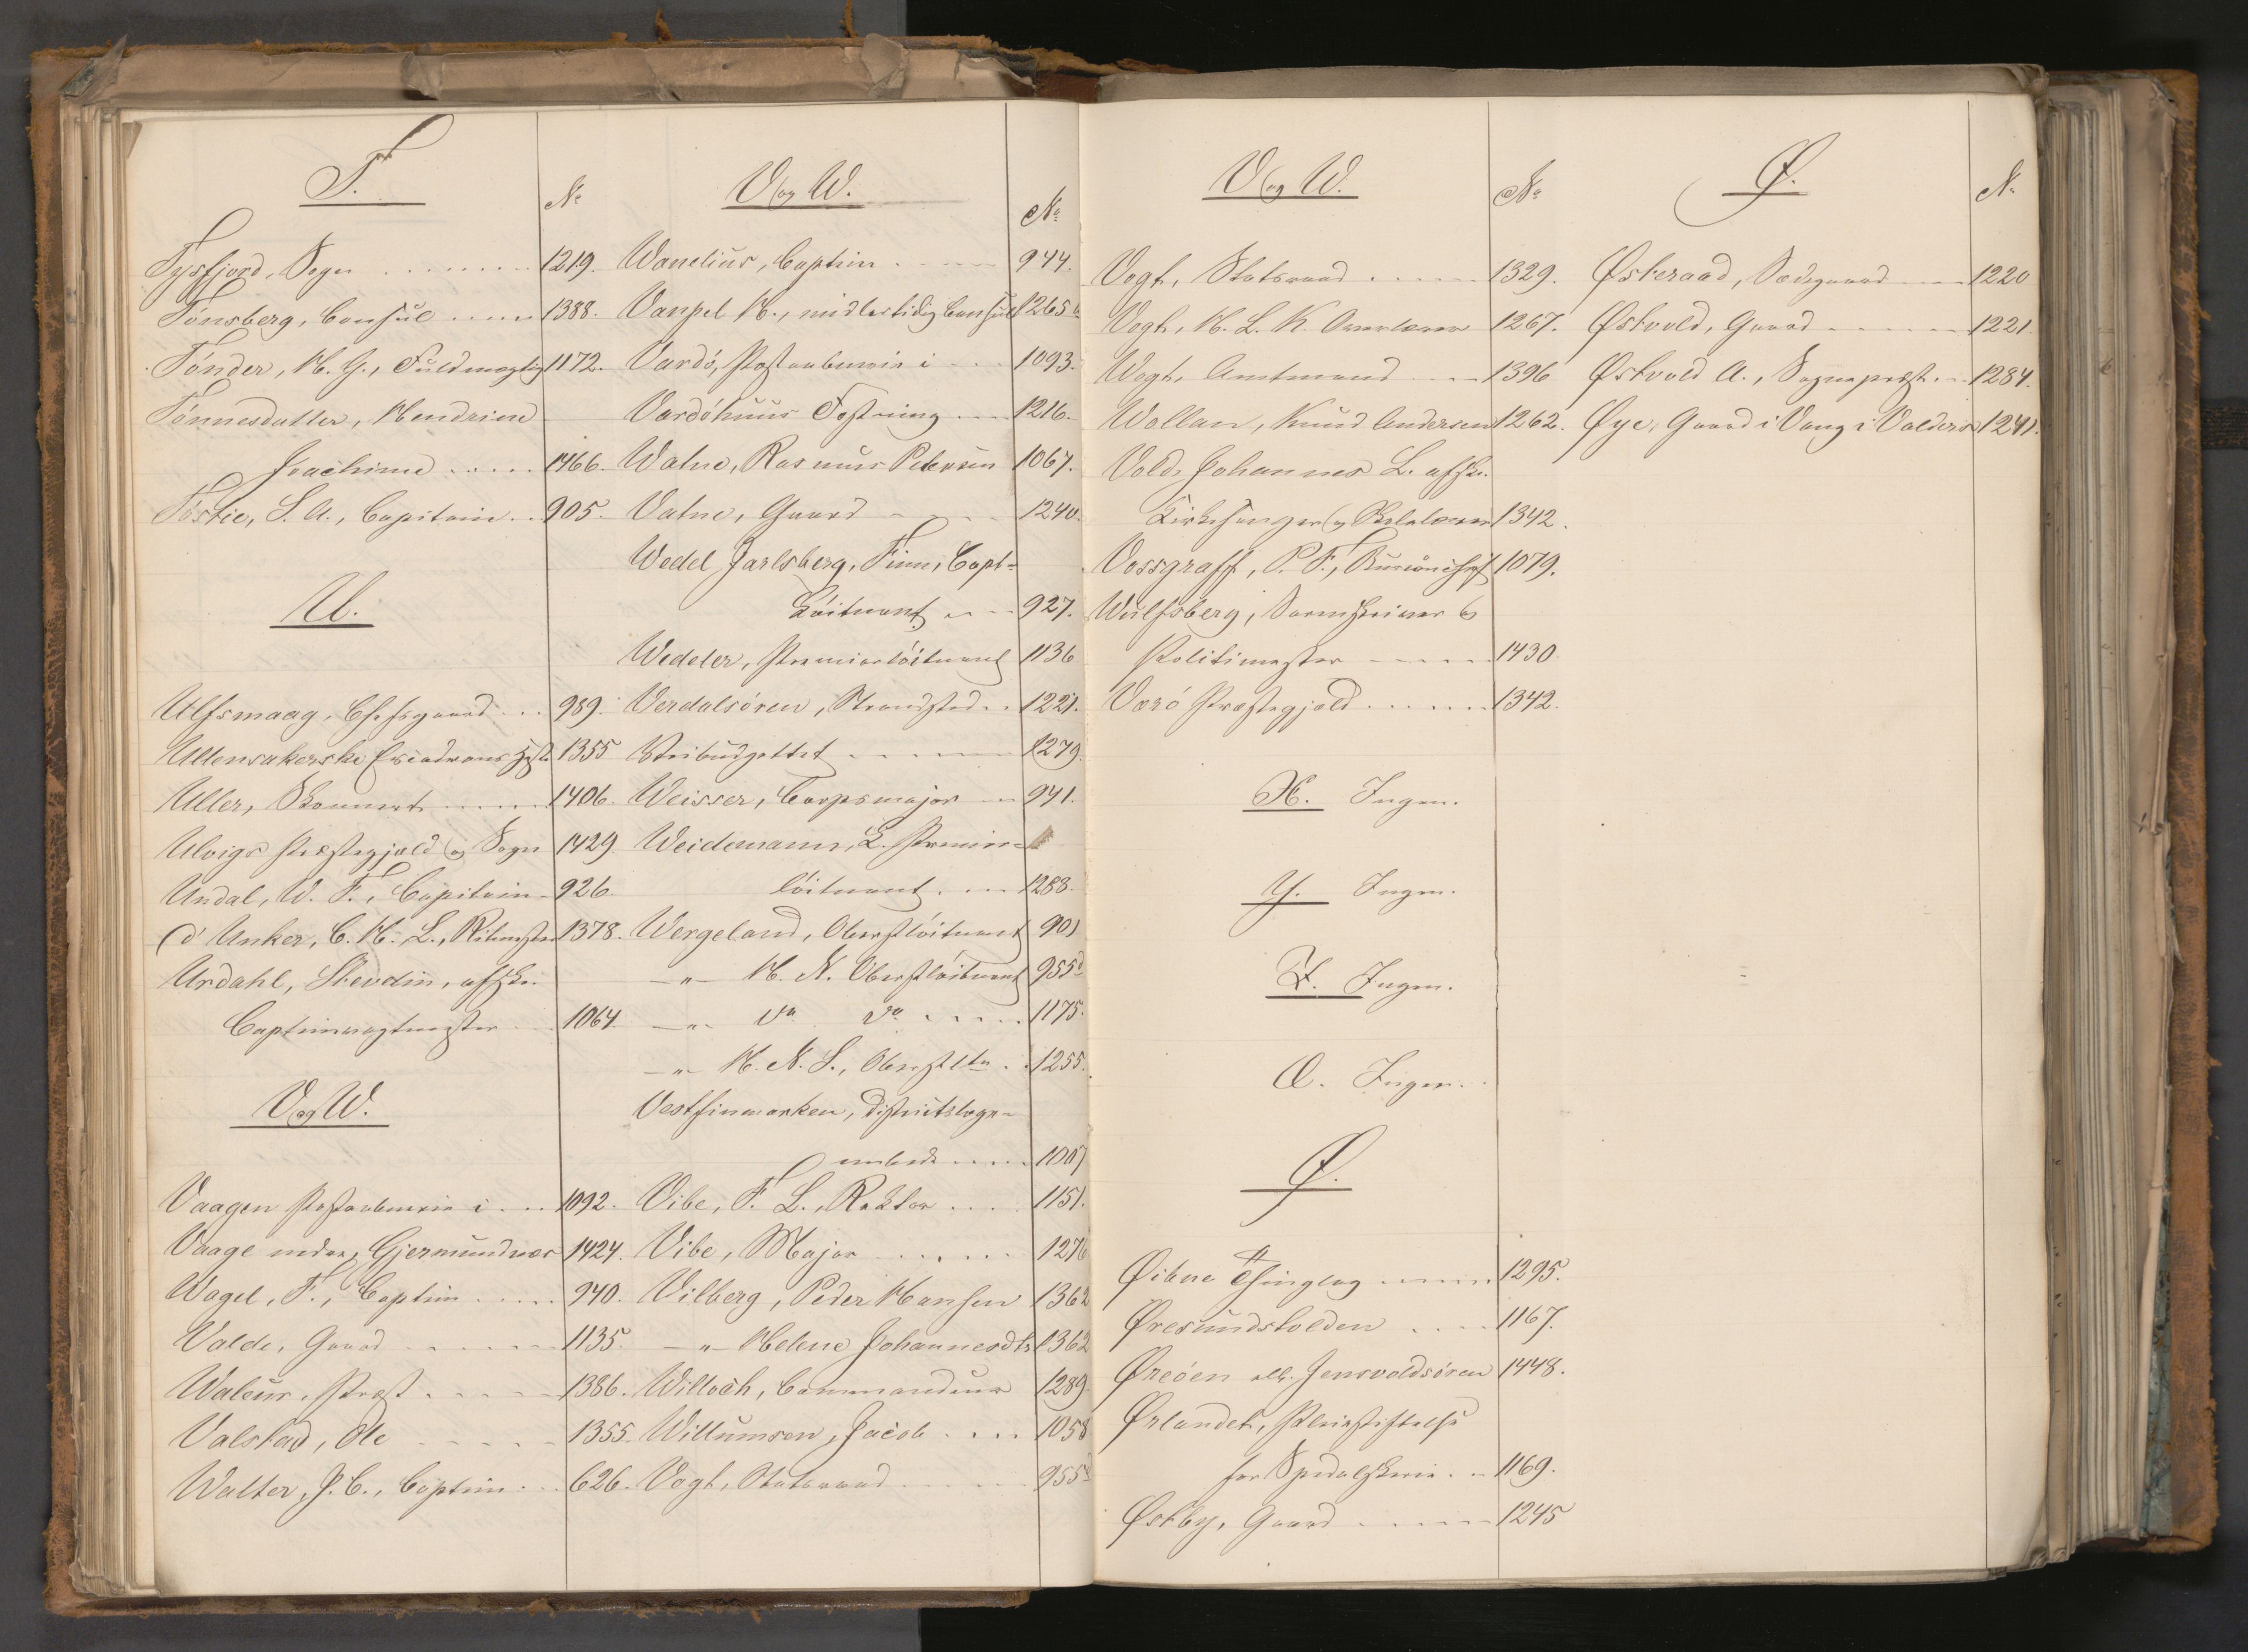 T.
No
Tysfjord, Sogn 1219.
Tønsberg, Consul 1388.
Tønder, H. G., Fuldmægtig 1172.
Tønnesdatter, Hendrine
Joachime 1466.
Tostie, S. A., Capitain 905.
U.
Ulfsmaag, Chefsgaard 989.
Ullensakerske Escadrons 1355
Uller, 1406.
Ulvigs Præstegjæld og Sogn 1429.
Undal, W. F., Capitain 926.
d'Unker, C. H. L., Ritmester 1378.
Urdahl, Stevelin, afsk.
1064.
V og W.
Vaagen Postaabnerie i 1092.
Vaage nedre, Gjermundnæs 1424.
Wagel, F., Captein 940.
Valde, Gaard 1135.
Waleur, Præst 1386.
Valstad, Ole 1355.
Walter, J. C., Captein 626.
V og W.
No
Wanelius, Captein 944.
Vangel H., midlertidig Consul 1265
Vardö, Postaabnerie i 1093.
Vardöhuus Fæstning 1216.
Watne, Rasmus Petersen 1067.
Vatne, Gaard 1240.
Wedel Jarlsberg, Finn, Capt-
Löitnant 927.
Wedeler, Premierlöitnant 1136
Verdalsören, Strandsted 1221.
Veibudgettet 1279.
Weisser, Corpsmajor 941.
Weidemann, L. Premier-
löitnant 1288.
Wergeland, Oberstlöitnant 901
-"- H. N. Oberstlöitnant 955d
-"- do do 1175.
-"- H. N. S., Oberstltn. 1255.
Vestfinmarken, Distriktslæge-
embede 1007
Vibe, F. L., Rektor 1151.
Vibe, Major 1276
Vilberg, Peder Hansen 1362
-"- Helene Johannesdtr 1362
Willoch, Commandeur 1289
Willumsen, Jacob 1058
Vogt, Statsraad 955d
V og W.
No
Vogt, Statsraad 1329.
Vogt, H. L. K. Overlærer 1267.
Vogt, Amtmand 1396
Wollan, Knud Andersen 1262.
Vold, Johannes L. afsk.
Kirkesanger og Skolelærer 1342.
Vossgraff, P. F., Bureauchef 1079.
Wulfsberg, Sorenskriver og
Politimester 1430.
Værö Præstegjæld 1342.
X. Ingen.
Y. Ingen.
Z. Ingen.
Æ. Ingen.
Ø.
Øiene Thinglag 1295.
Øresundstolden 1167.
Øreöen ell. Jensvoldsören 1448.
Ørlandet, Pleiestiftelse
for Spedalskere 1169.
Østby, Gaard 1245
Ø.
No
Østeraad, Sædegaard 1220
Østvold, Gaard 1221.
Østvold A., Sognepræst 1284.
Øye, Gaard i Vang i Valders 1241.